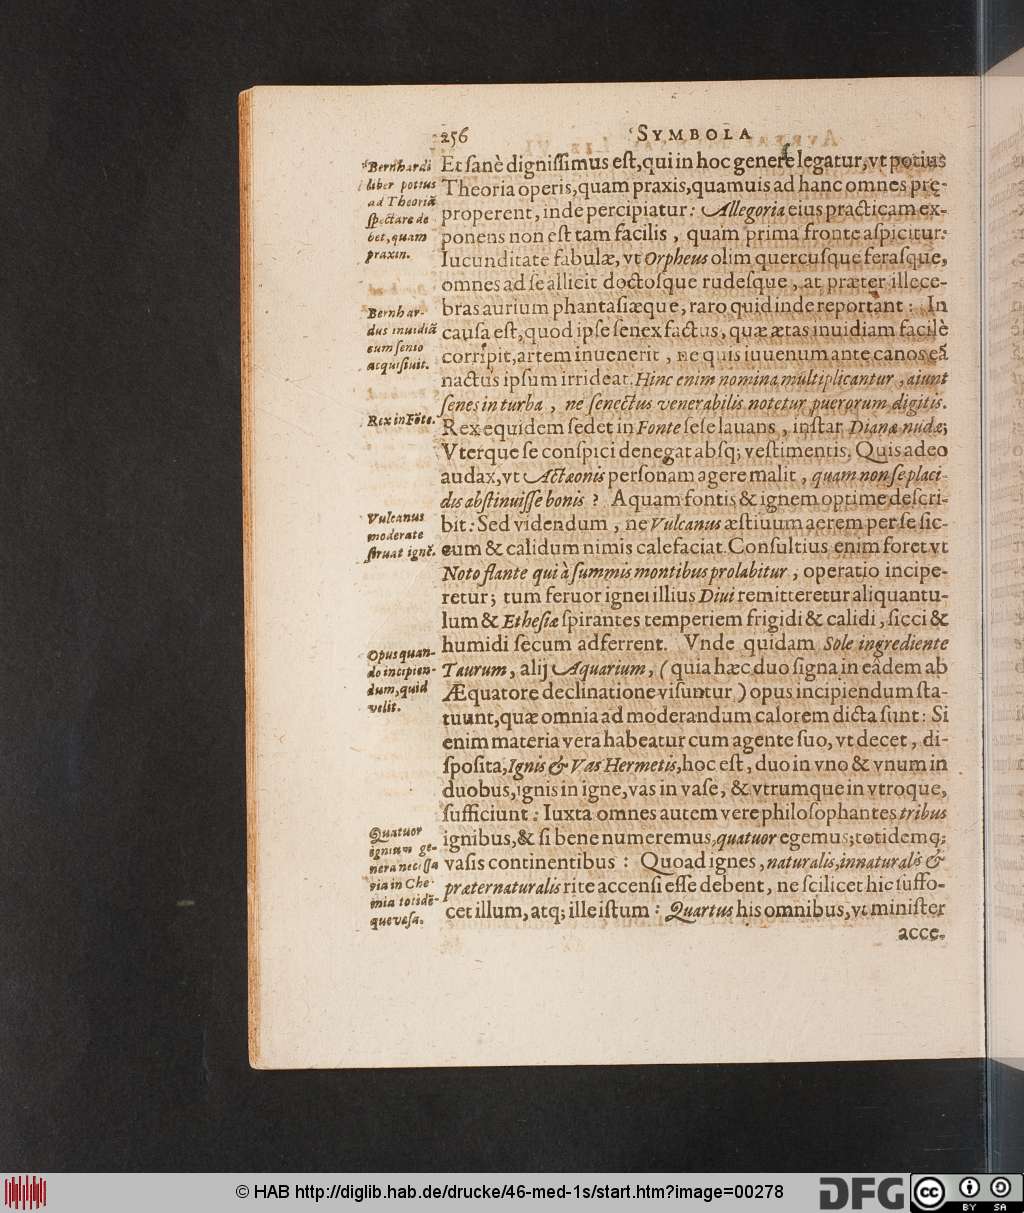 256 SYMBOLA
Bernhardi
liber potius
ad Theoriã
spectare de
bet, quam
praxin.
Bernhar-
dus inuidiã
cum senio
acquisiuit.
Rex in Fõte.
Vulcanus
moderate
struat ignẽ.
Opus quan-
do incipien-
dum, quid
velit.
Quatuor
ignium ge-
nera necessa
ria in Che-
mia totidẽ-
que vasa.
Et sanè dignissimus est, qui in hoc genere legatur, vt potius
Theoria operis, quam praxis, quamuis ad hanc omnes prę-
properent, inde percipiatur: Allegoria eius practicam ex-
ponens non est tam facilis, quam prima fronte aspicitur:
Iucunditate fabulæ, vt Orpheus olim quercusque ferasque,
omnes ad se allicit doctosque rudesque, at præter illece-
bras aurium phantasiæque, raro quid inde reportant: In
causa est, quod ipse senex factus, quæ ætas inuidiam facilè
corripit, artem inuenerit, ne quis iuuenum ante canos eã
nactus ipsum irrideat. Hinc enim nomina multiplicantur, aiunt
senes in turba, ne senectus venerabilis notetur puerorum digitis.
Rex equidem sedet in Fonte sese lauans, instar Dianæ nudæ;
Vterque se conspici denegat absq; vestimentis. Quis adeo
audax, vt Actæonis personam agere malit, quam non se placi-
dis abstinuisse bonis? Aquam fontis & ignem optime descri-
bit: Sed videndum, ne Vulcanus æstiuum aerem per se sic-
cum & calidum nimis calefaciat. Consultius enim foret vt
Noto flante qui à summis montibus prolabitur, operatio incipe-
retur; tum feruor ignei illius Diui remitteretur aliquantu-
lum & Ethesiæ spirantes temperiem frigidi & calidi, sicci &
humidi secum adferrent. Vnde quidam Sole ingrediente
Taurum, alij Aquarium, (quia hæc duo signa in eâdem ab
Æquatore declinatione visuntur) opus incipiendum sta-
tuunt, quæ omnia ad moderandum calorem dicta sunt: Si
enim materia vera habeatur cum agente suo, vt decet, di-
sposita, Ignis & Vas Hermetis, hoc est, duo in vno & vnum in
duobus, ignis in igne, vas in vase, & vtrumque in vtroque,
sufficiunt: Iuxta omnes autem vere philosophantes tribus
ignibus, & si bene numeremus, quatuor egemus; totidemq;
vasis continentibus: Quoad ignes, naturalis, innaturalis &
præternaturalis rite accensi esse debent, ne scilicet hic suffo-
cet illum, atq; ille istum: Quartus his omnibus, vt minister
acce-
© HAB http://diglib.hab.de/drucke/46-med-1s/start.htm?image=00278
DFG
cc
BY SA